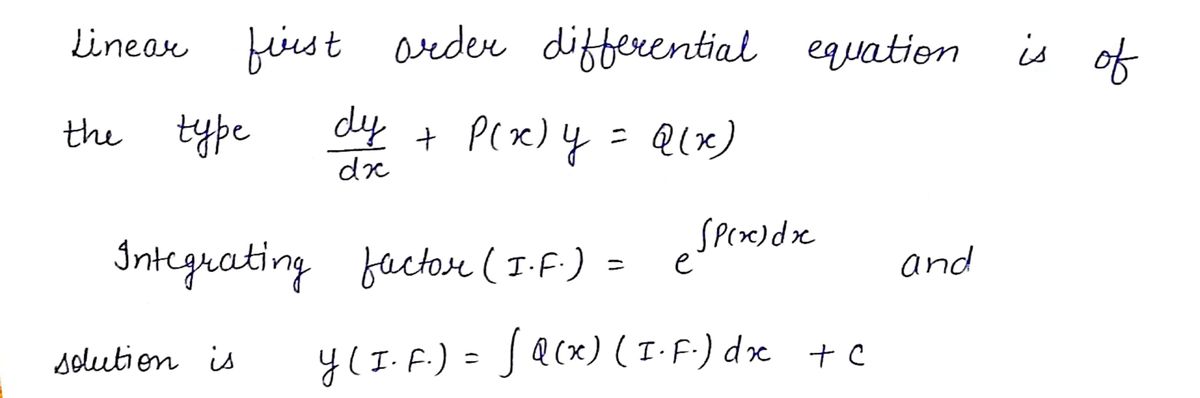 Linear first order differential equation is of
the type dy/dx + P(x) y = Q(x)
Integrating factor (I.F.) = e^∫P(x)dx and
solution is y(I.F.) = ∫Q(x) (I.F.) dx + c